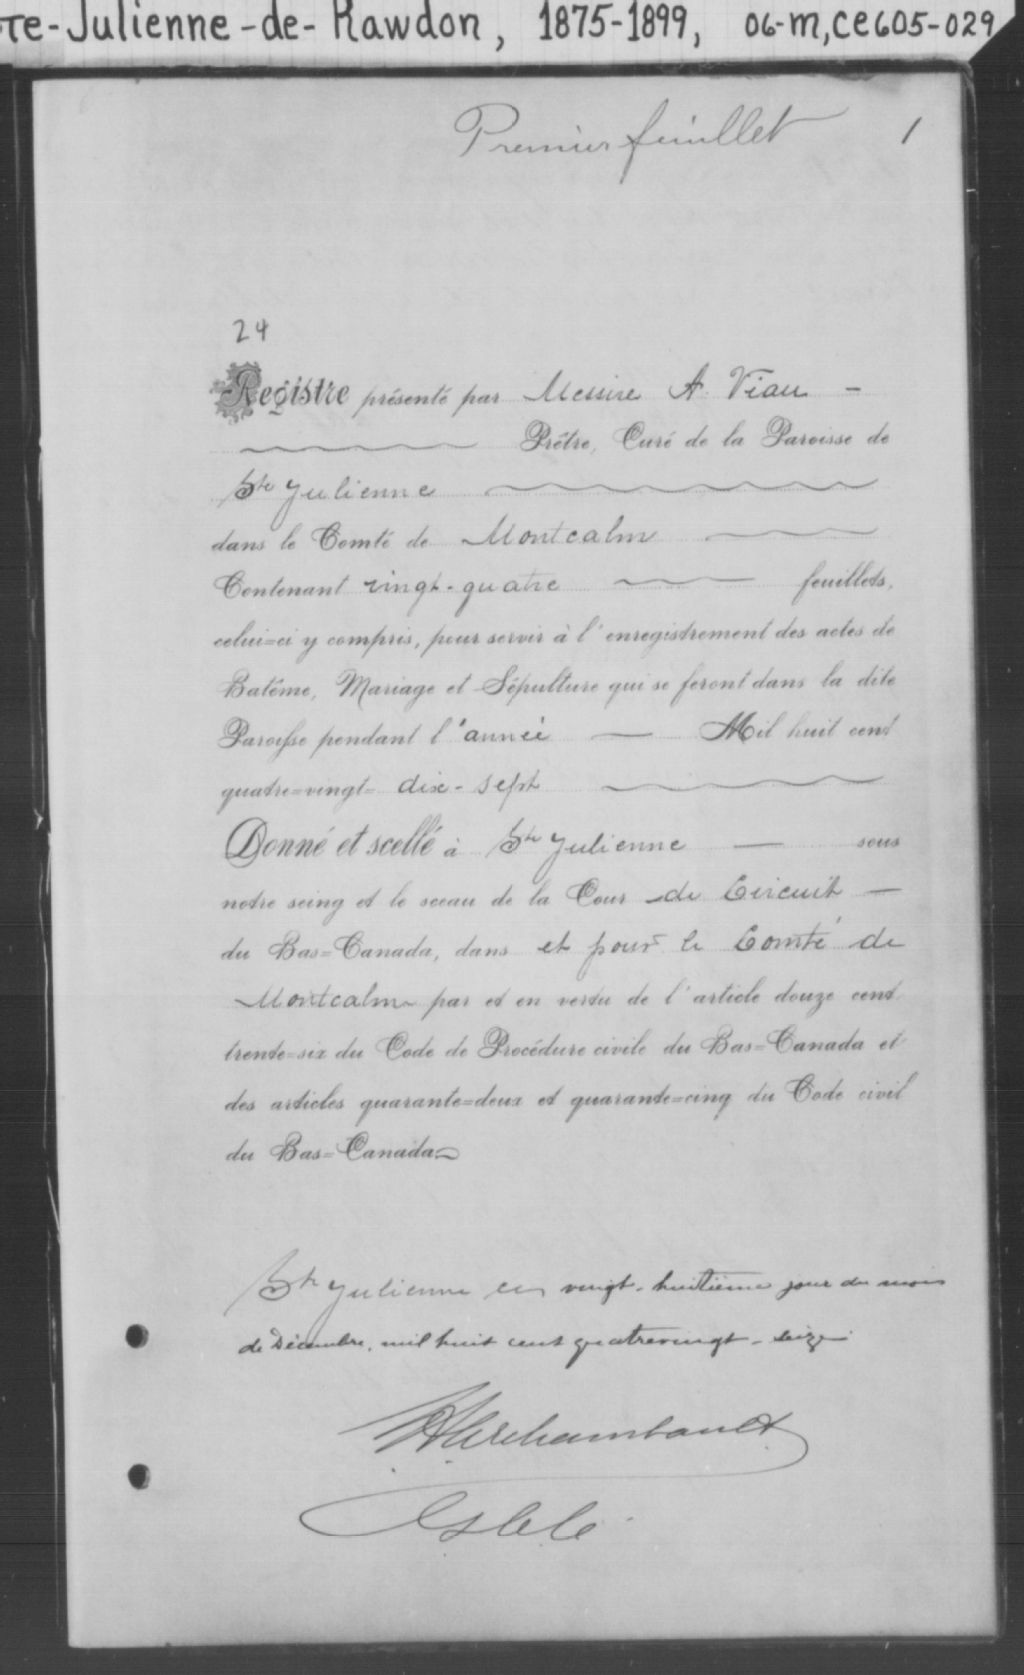 te-Julienne-de-Rawdon, 1875-1899, 06-M,CE605-029
Premier feuillet 1
24
Registre présenté par Messire A. Viau –
Prêtre, Curé de la Paroisse de
Ste Julienne
dans le Comté de Montcalm
Contenant vingt-quatre feuillets,
celui=ci y compris, pour servir à l'enregistrement des actes de
Batême, Mariage et Sépulture qui se feront dans la dite
Paroisse pendant l'année — Mil huit cent
quatre=vingt= dix-sept
Donné et scellé à Ste Julienne — sous
notre seing et le sceau de la Cour de Circuit —
du Bas=Canada, dans et pour le Comté de
Montcalm par et en vertu de l'article douze cent
trente=six du Code de Procédure civile du Bas=Canada et
des articles quarante=deux et quarante=cinq du Code civil
du Bas=Canada
Ste Julienne ce vingt-huitième jour du mois
de Décembre, mil huit cent quatrevingt-seize
Archambault